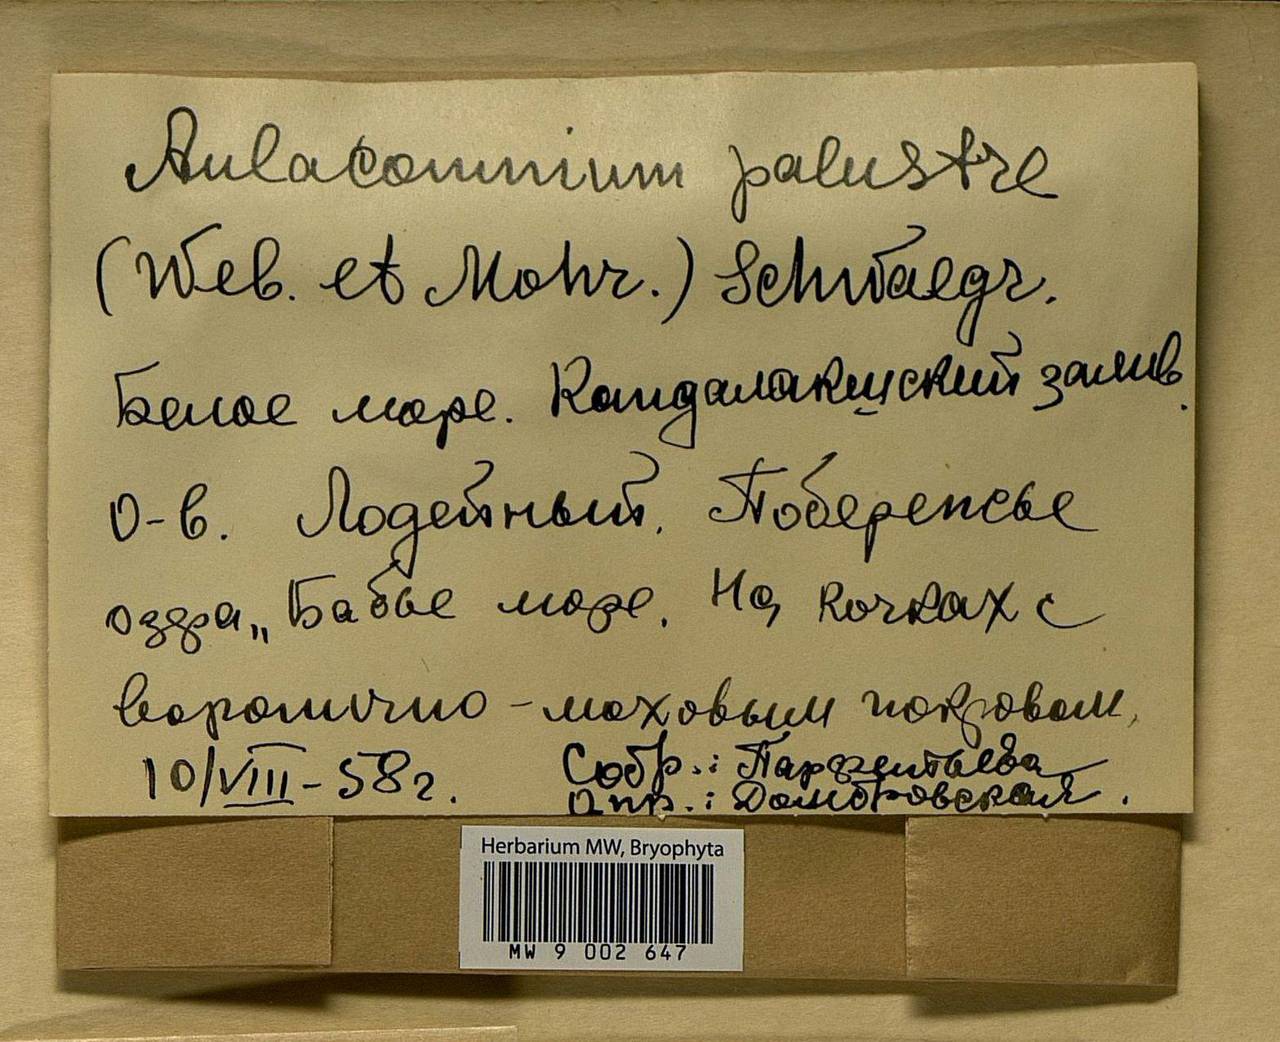 Aulacomnium palustre
(Web. et Mohr.) Schwaegr.
Белое море. Кандалакшский залив.
О-в. Лодейный. Побережье
озера „Бабье море. На кочках с
воронично-моховым покровом,
10/VIII-58г.
Собр.: Парфентьева
Опр.: Домбровская.
Herbarium MW, Bryophyta
MW 9 002 647